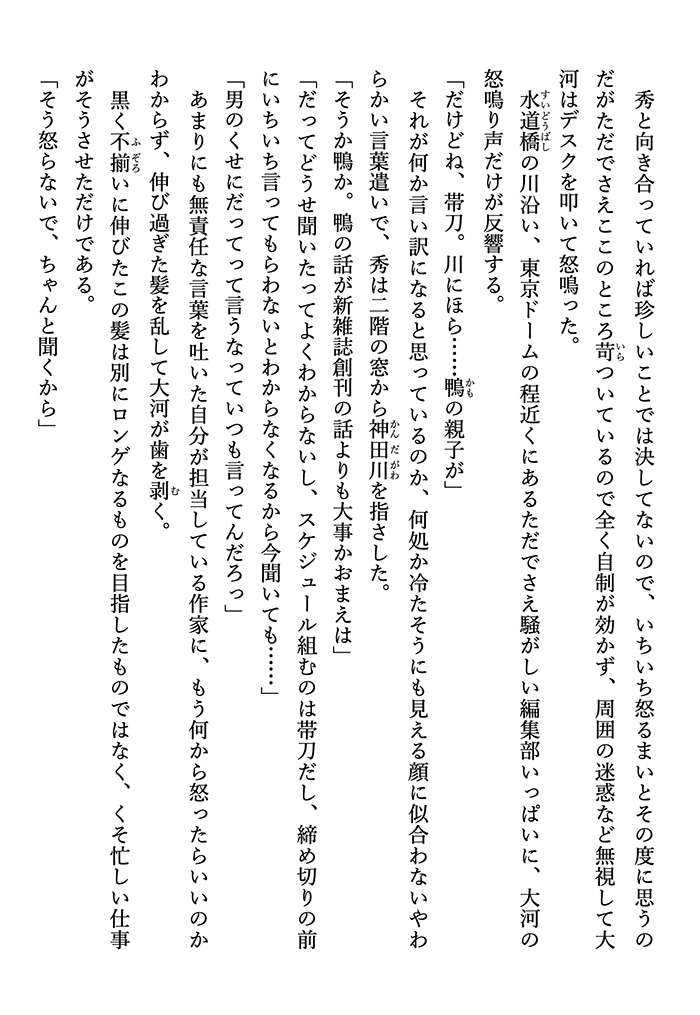 秀と向き合っていれば珍しいことでは決してないので、いちいち怒るまいとその度に思うの
だがただでさえここのところ苛ついているので全く自制が効かず、周囲の迷惑など無視して大
河はデスクを叩いて怒鳴った。
　水道橋の川沿い、東京ドームの程近くにあるただでさえ騒がしい編集部いっぱいに、大河の
怒鳴り声だけが反響する。
「だけどね、帯刀。川にほら……鴨の親子が」
　それが何か言い訳になると思っているのか、何処か冷たそうにも見える顔に似合わないやわ
らかい言葉遣いで、秀は二階の窓から神田川を指さした。
「そうか鴨か。鴨の話が新雑誌創刊の話よりも大事かおまえは」
「だってどうせ聞いたってよくわからないし、スケジュール組むのは帯刀だし、締め切りの前
にいちいち言ってもらわないとわからなくなるから今聞いても……」
「男のくせにだってって言うなっていつも言ってんだろっ」
　あまりにも無責任な言葉を吐いた自分が担当している作家に、もう何から怒ったらいいのか
わからず、伸び過ぎた髪を乱して大河が歯を剥く。
　黒く不揃いに伸びたこの髪は別にロンゲなるものを目指したものではなく、くそ忙しい仕事
がそうさせただけである。
「そう怒らないで、ちゃんと聞くから」